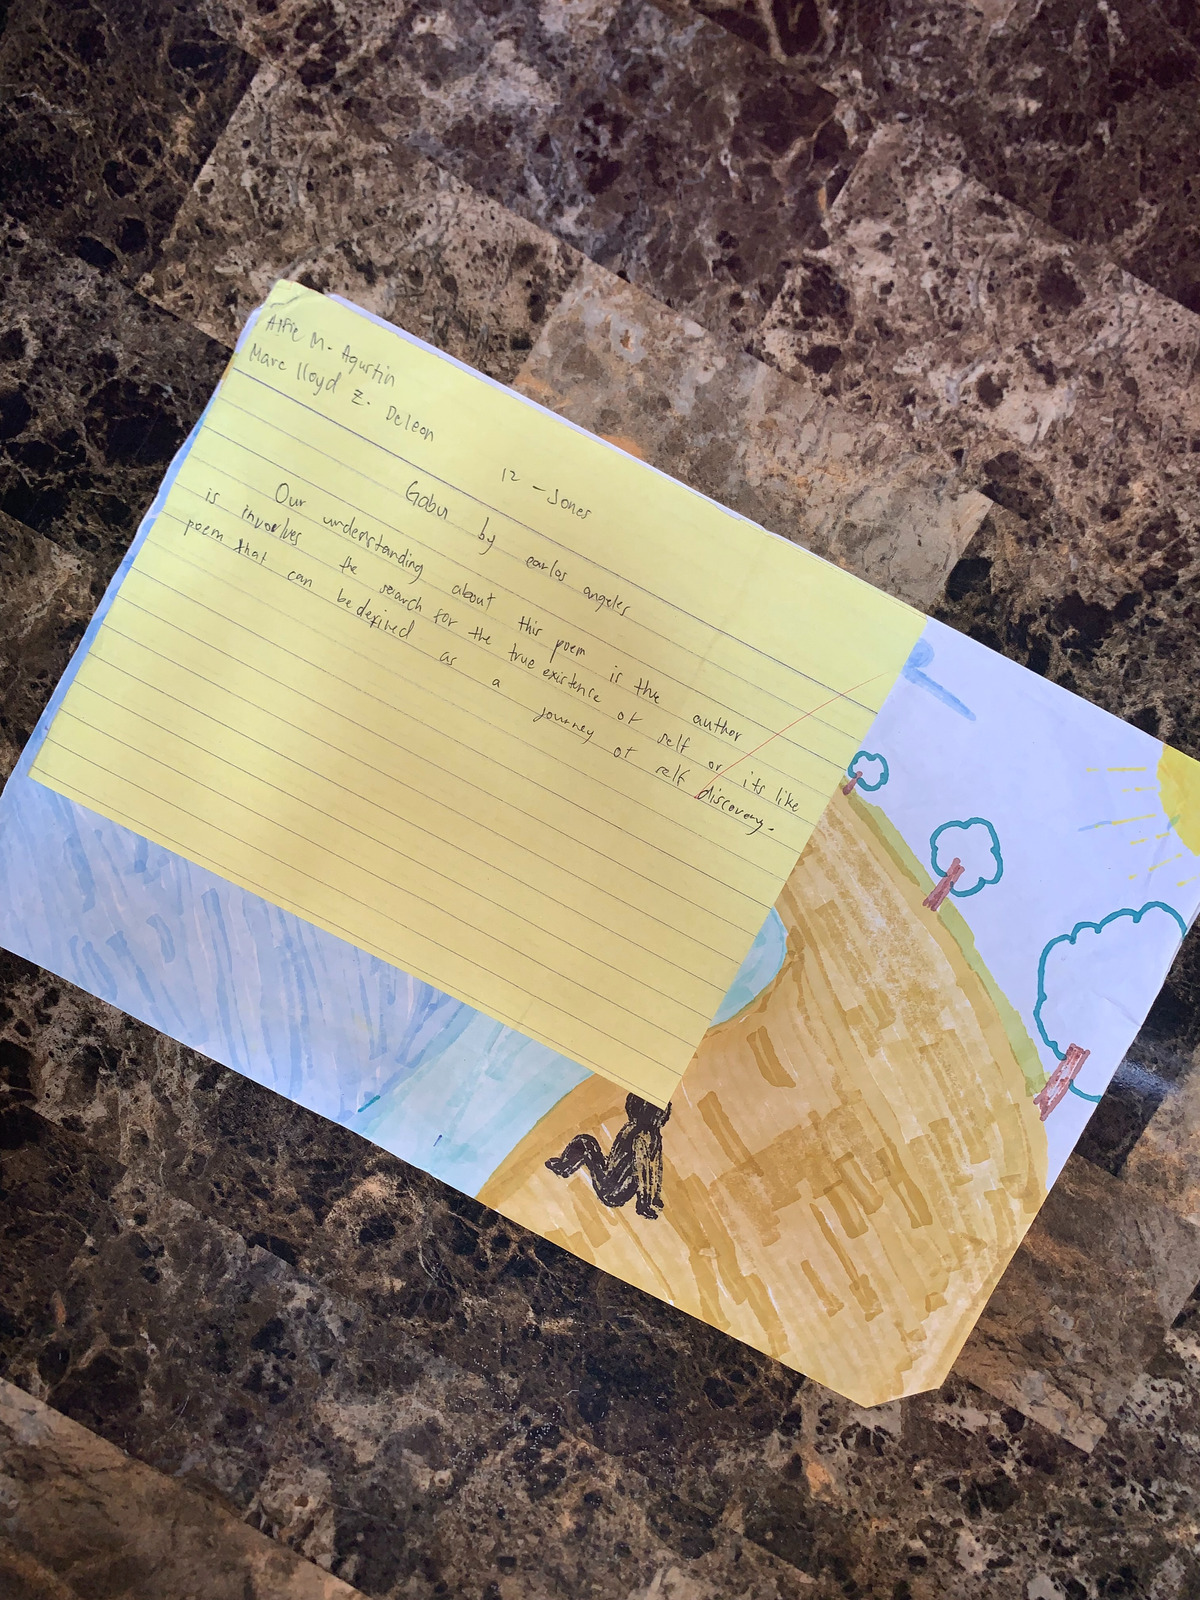 Alfie M. Agustin
Marc lloyd Z. Deleon
12 - Jones
Gabu by carlos angeles
Our understanding about this poem is the author
is involves the search for the true existence of self or its like
poem that can be defined as a journey of self discovery.